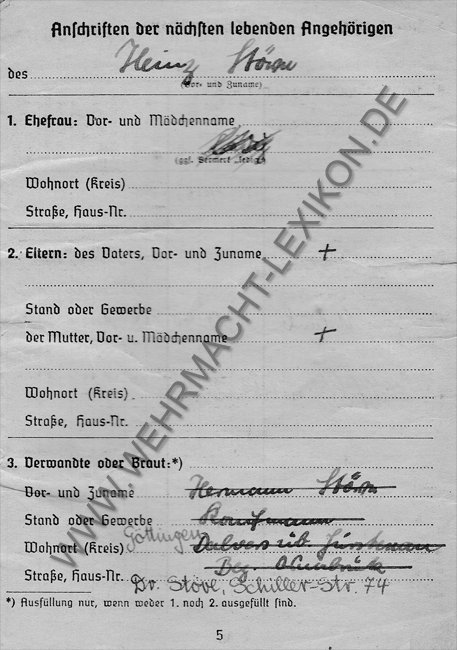 Anschriften der nächsten lebenden Angehörigen
des Heinz Störe
(Vor- und Zuname)
1. Ehefrau: Vor- und Mädchenname
(ggf. Vermerk „ledig“)
Wohnort (Kreis)
Straße, Haus-Nr.
2. Eltern: des Vaters, Vor- und Zuname +
Stand oder Gewerbe
der Mutter, Vor- u. Mädchenname +
Wohnort (Kreis)
Straße, Haus-Nr.
3. Verwandte oder Braut:*)
Vor- und Zuname Hermann Störe
Stand oder Gewerbe Kaufmann
Wohnort (Kreis) Göttingen Dalvers üb Fürstenau
Bez. Osnabrück
Straße, Haus-Nr. Dr. Störe, Schiller-Str. 74
*) Ausfüllung nur, wenn weder 1. noch 2. ausgefüllt sind.
5
WWW.WEHRMACHT-LEXIKON.DE